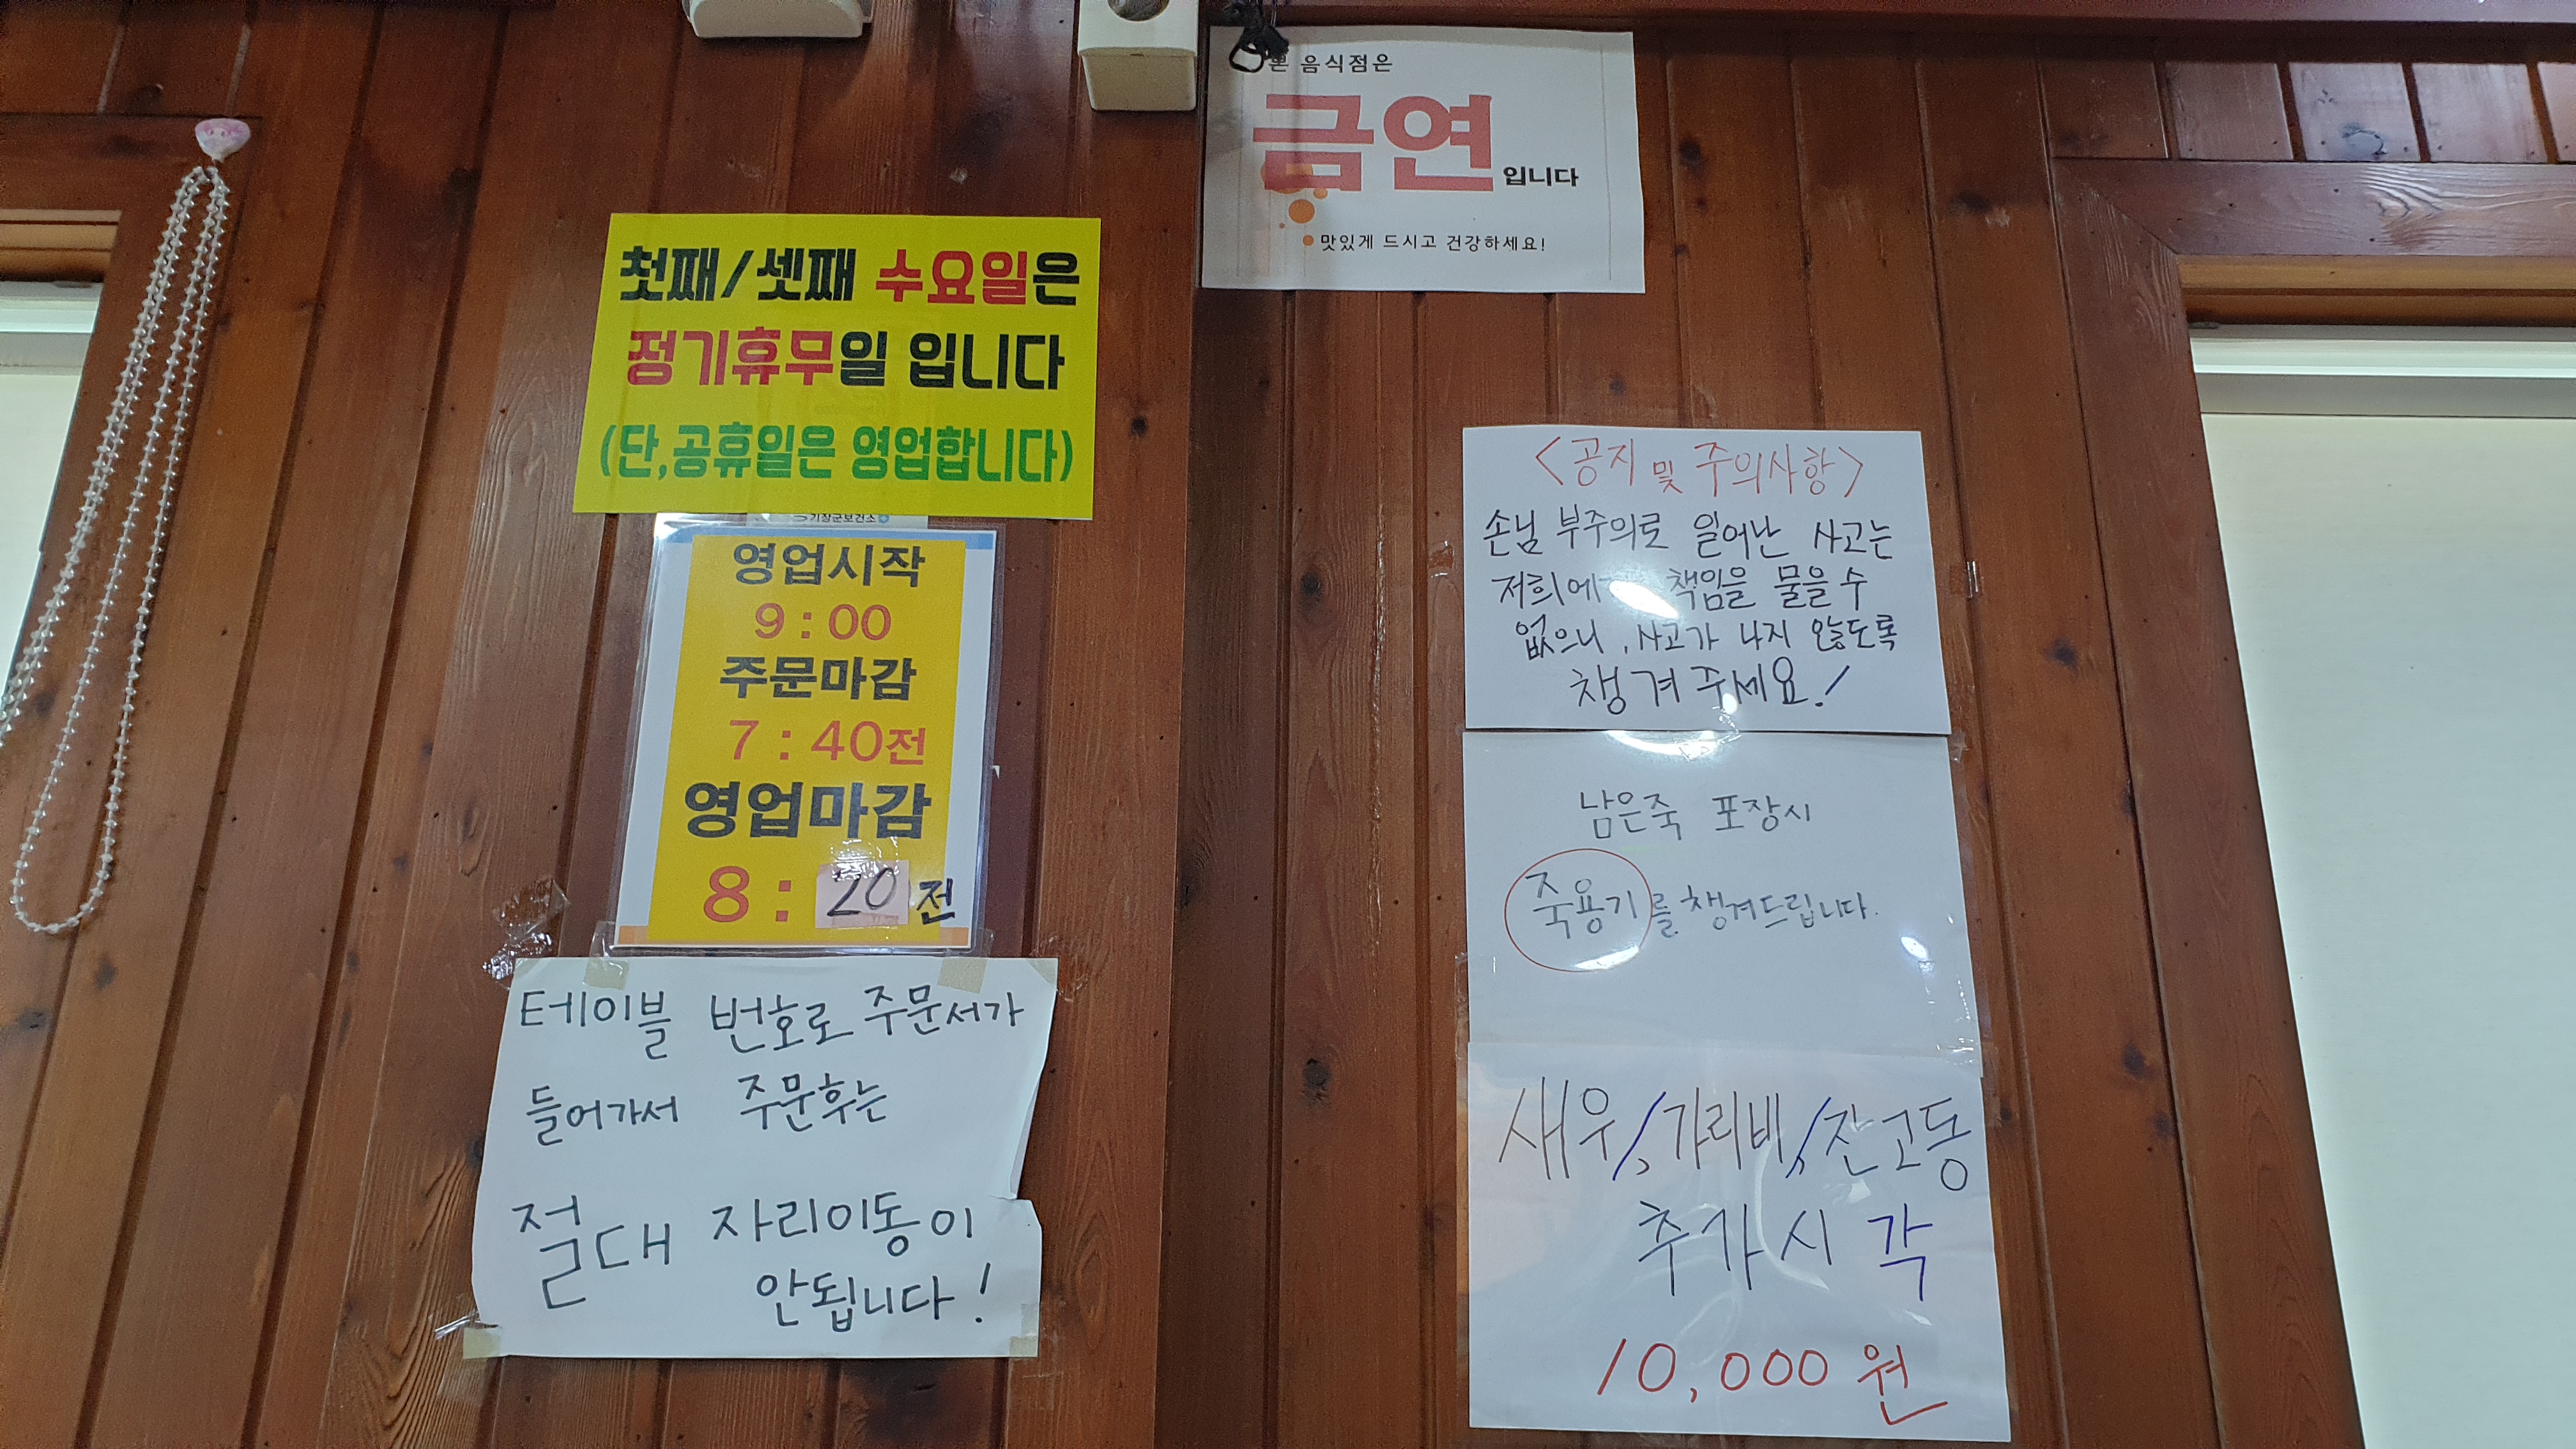 본 음식점은
금연입니다
맛있게 드시고 건강하세요!
첫째/셋째 수요일은
정기휴무일 입니다
(단,공휴일은 영업합니다)
기장군보건소
영업시작
9:00
주문마감
7:40전
영업마감
8:20전
테이블 번호로 주문서가
들어가서 주문후는
절대 자리이동이
안됩니다!
<공지 및 주의사항>
손님 부주의로 일어난 사고는
저희에 책임을 물을 수
없으니, 사고가 나지 않도록
챙겨 주세요!
남은죽 포장시
죽용기를 챙겨드립니다.
새우/,가리비/,잔고동
추가시 각
10,000원